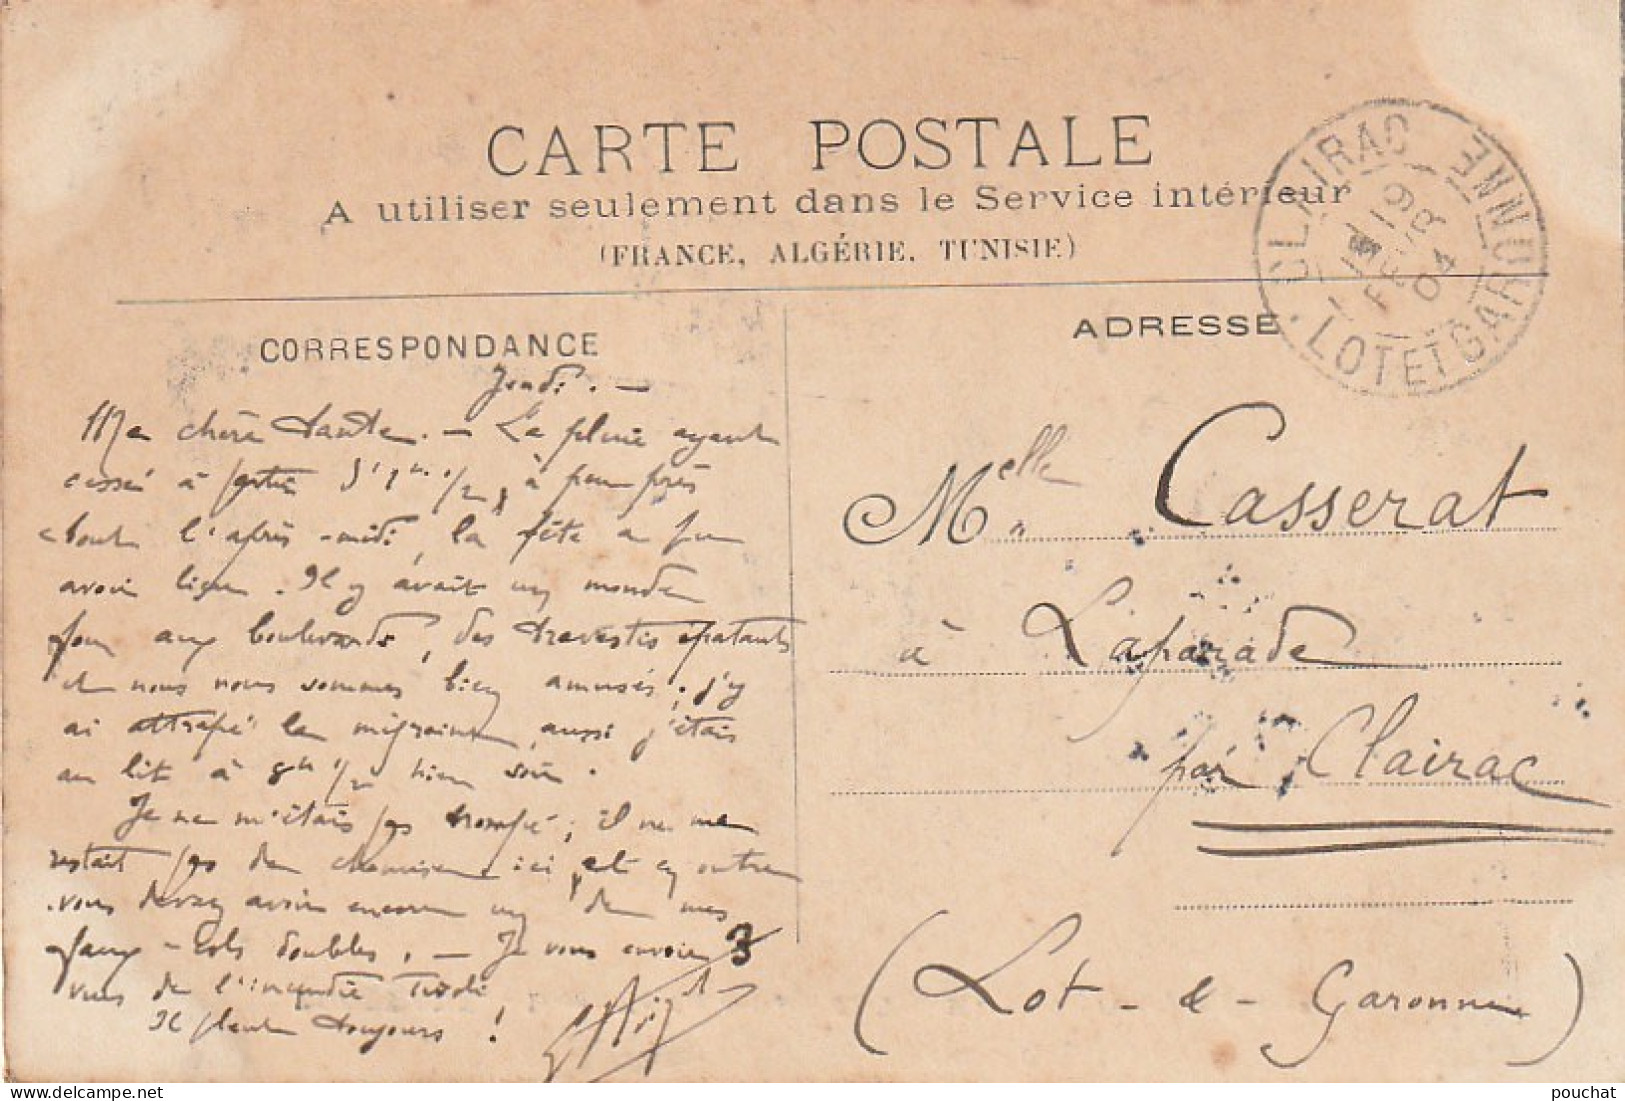 CARTE POSTALE
A utiliser seulement dans le Service intérieur
(FRANCE, ALGÉRIE, TUNISIE)
CLAIRAC
LOT ET GARONNE
19
FEVR
04
CORRESPONDANCE
Jeudi. —
Ma chère tante. — La pluie ayant
cessé à partir d'1h. 1/2, à peu près
toute l'après-midi, la fête a pu
avoir lieu. Il y avait un monde
fou aux boulevards, des travestis épatants
et nous nous sommes bien amusés; j'y
ai attrapé la migraine, aussi j'étais
au lit à 8h 1/2 hier soir.
Je ne m'étais pas trompé; il ne me
restait pas de chemise ici et en outre
vous devez avoir encore un de mes
faux-cols doubles. — Je vous envoie 3
vues de l'incendie Tivoli
Il pleut toujours !
ADRESSE
Melle Casserat
à Laparade
par Clairac
(Lot-&-Garonne)
pouchat